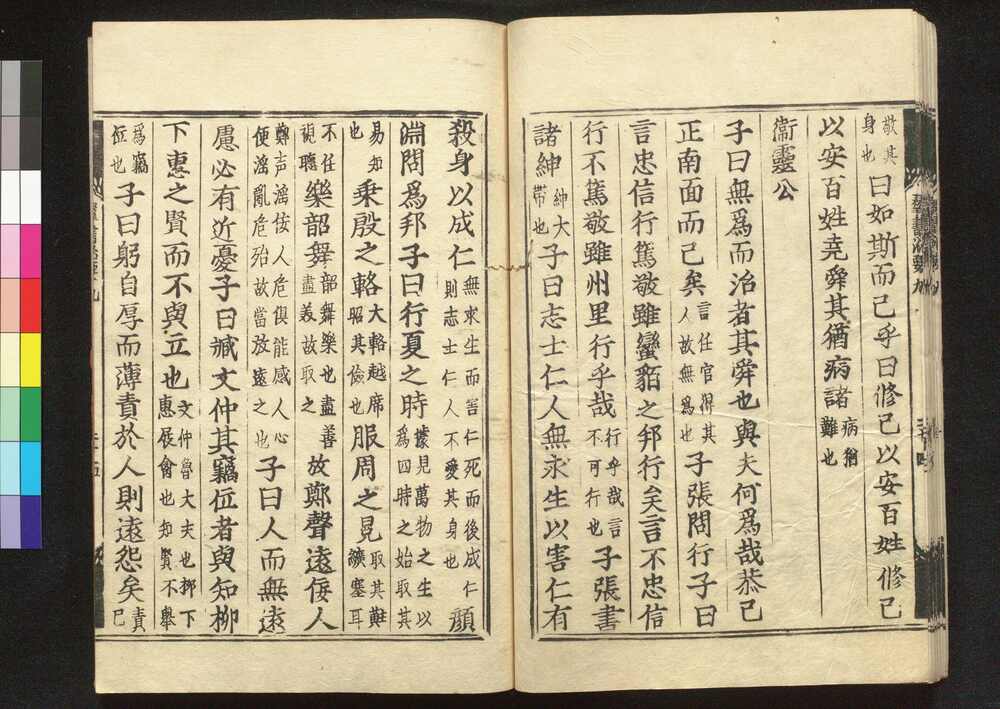 敬其身也曰如斯而已乎曰脩己以安百姓脩己
以安百姓堯舜其猶病諸病猶難也
衞靈公
子曰無爲而治者其舜也與夫何爲哉恭己
正南面而已矣言任官得其人故無爲也子張問行子曰
言忠信行篤敬雖蠻貊之邦行矣言不忠信
行不篤敬雖州里行乎哉行乎哉言不可行也子張書
諸紳紳大帶也子曰志士仁人無求生以害仁有
殺身以成仁無求生而害仁死而後成仁則志士仁人不愛其身也顏
淵問爲邦子曰行夏之時據見萬物之生以爲四時之始取其
易知也乘殷之輅大輅越席昭其儉也服周之冕取其黈纊塞耳
不任視聽樂韶舞韶舞樂也盡善盡美故取之放鄭聲遠佞人
鄭声滛佞人危俱能感人心使滛亂危殆故當放遠之也子曰人而無遠
慮必有近憂子曰臧文仲其竊位者與知柳
下惠之賢而不與立也文仲魯大夫也柳下惠展禽也知賢不舉
爲竊位也子曰躬自厚而薄責於人則遠怨矣責己
群書治要九
二十五